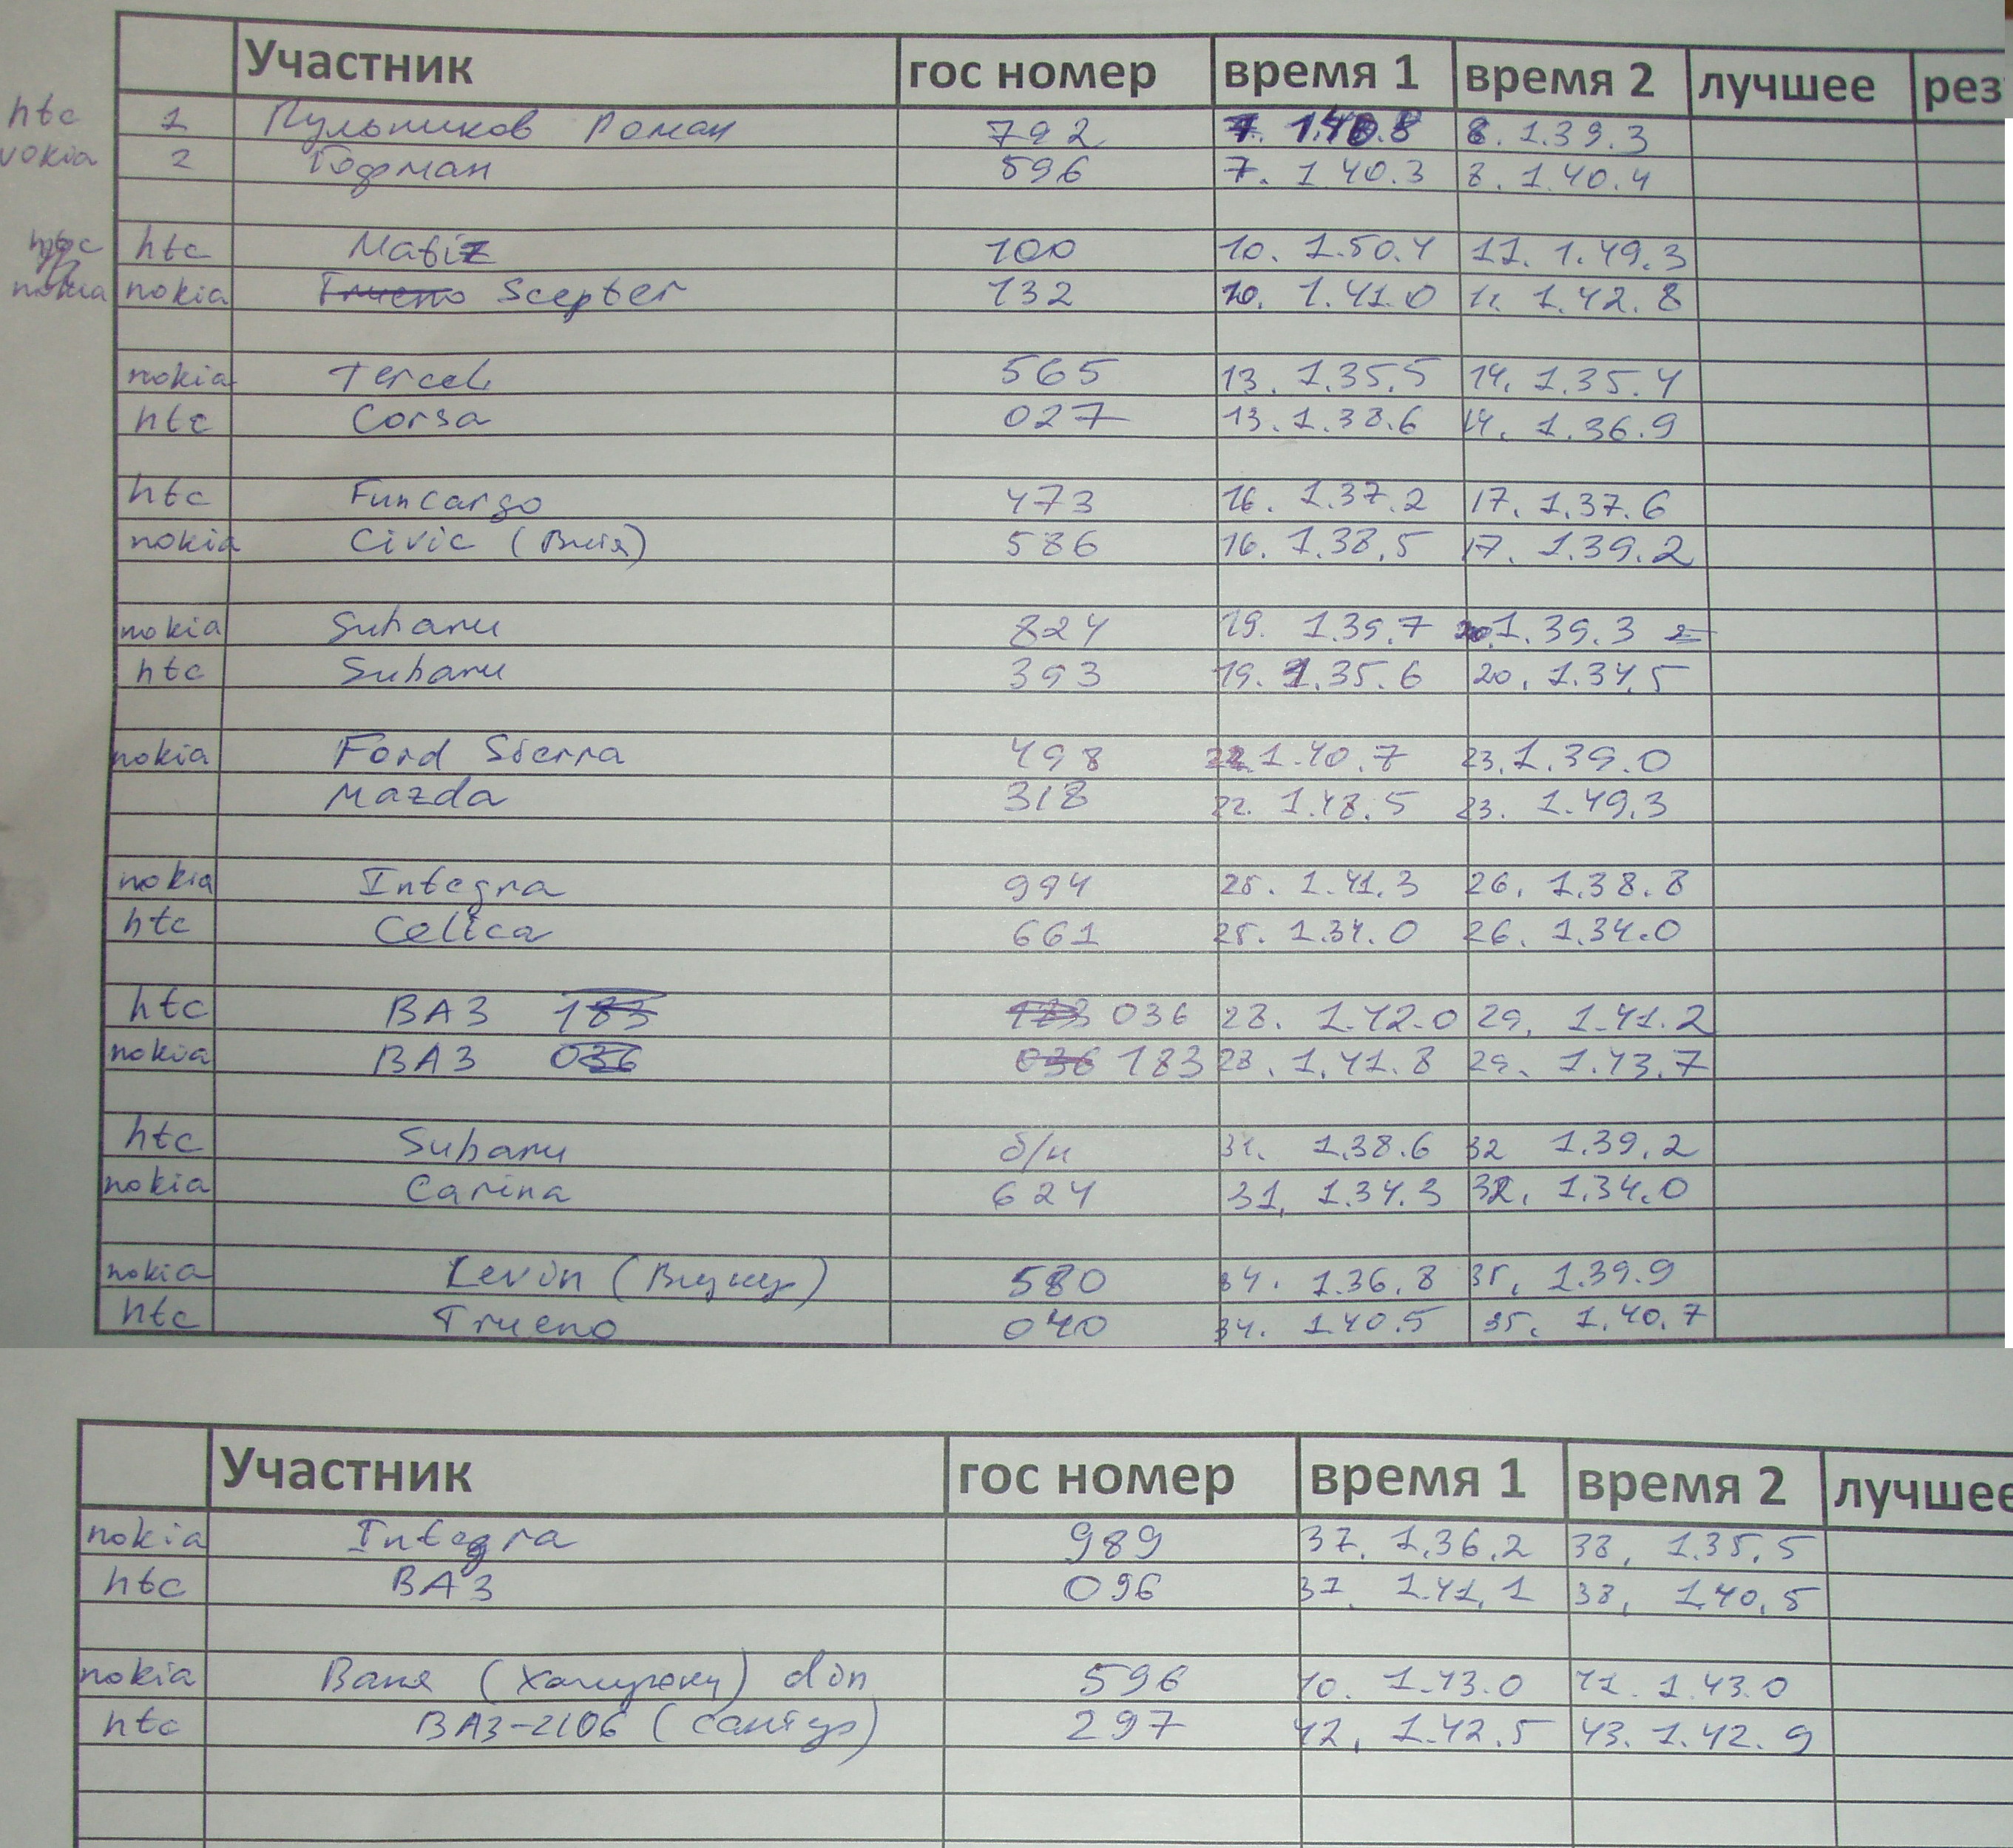 Участник гос номер время 1 время 2 лучшее рез
htc 1 Пульников Роман 792 7. 1.40.8 8. 1.39.3
nokia 2 Гофман 596 7. 1.40.3 8. 1.40.4
htc Matiz 100 10. 1.50.4 11. 1.49.3
nokia nokia Trueno Scepter 132 10. 1.41.0 11. 1.42.8
nokia Tercel 565 13. 1.35.5 14. 1.35.4
htc Corsa 027 13. 1.38.6 14. 1.36.9
htc Funcargo 473 16. 1.37.2 17. 1.37.6
nokia Civic 586 16. 1.38.5 17. 1.39.2
nokia Subaru 824 19. 1.39.7 20. 1.39.3
htc Subaru 393 19. 1.35.6 20. 1.34.5
nokia Ford Sierra 498 22. 1.40.7 23. 1.39.0
Mazda 318 22. 1.48.5 23. 1.49.3
nokia Integra 994 25. 1.41.3 26. 1.38.8
htc Celica 661 25. 1.34.0 26. 1.34.0
htc ВАЗ 183 183 036 28. 1.42.0 29. 1.41.2
nokia ВАЗ 036 036 183 28. 1.41.8 29. 1.43.7
htc Subaru б/н 31. 1.38.6 32 1.39.2
nokia Carina 624 31. 1.34.3 32. 1.34.0
nokia Levin 580 34. 1.36.8 35. 1.39.9
htc Trueno 040 34. 1.40.5 35. 1.40.7
Участник гос номер время 1 время 2 лучшее
nokia Integra 989 37. 1.36.2 38. 1.35.5
htc ВАЗ 096 37. 1.41.1 38. 1.40.5
nokia Ваня 596 40. 1.43.0 41. 1.43.0
htc ВАЗ-2106 297 42. 1.42.5 43. 1.42.9